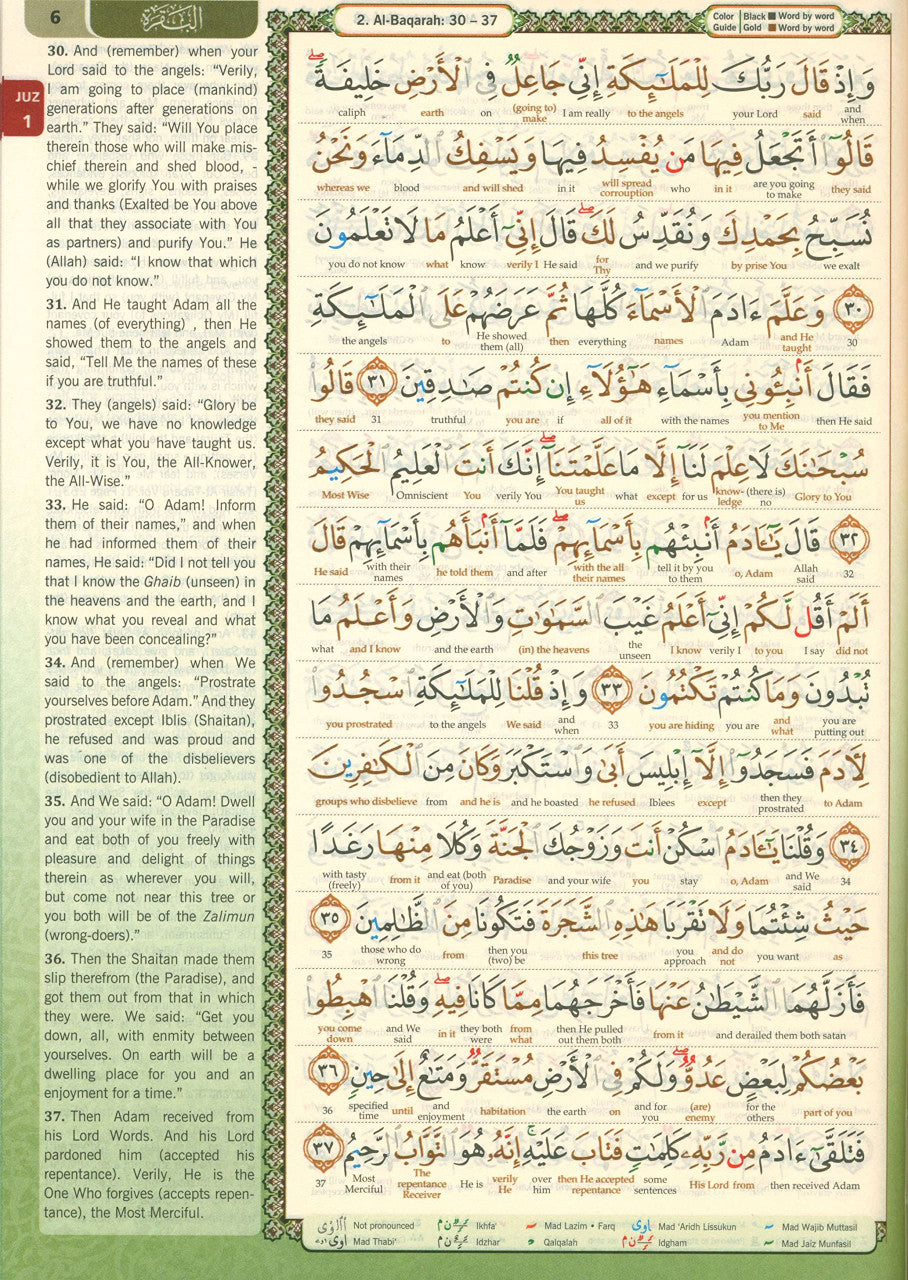 6
البقرة
2. Al-Baqarah: 30 – 37
Color Guide | Black ■ Word by word
Gold ■ Word by word
JUZ
1
30. And (remember) when your
Lord said to the angels: “Verily,
I am going to place (mankind)
generations after generations on
earth.” They said: “Will You place
therein those who will make mis-
chief therein and shed blood, -
while we glorify You with praises
and thanks (Exalted be You above
all that they associate with You
as partners) and purify You.” He
(Allah) said: “I know that which
you do not know.”
31. And He taught Adam all the
names (of everything) , then He
showed them to the angels and
said, “Tell Me the names of these
if you are truthful.”
32. They (angels) said: “Glory be
to You, we have no knowledge
except what you have taught us.
Verily, it is You, the All-Knower,
the All-Wise.”
33. He said: “O Adam! Inform
them of their names,” and when
he had informed them of their
names, He said: “Did I not tell you
that I know the Ghaib (unseen) in
the heavens and the earth, and I
know what you reveal and what
you have been concealing?”
34. And (remember) when We
said to the angels: “Prostrate
yourselves before Adam.” And they
prostrated except Iblis (Shaitan),
he refused and was proud and
was one of the disbelievers
(disobedient to Allah).
35. And We said: “O Adam! Dwell
you and your wife in the Paradise
and eat both of you freely with
pleasure and delight of things
therein as wherever you will,
but come not near this tree or
you both will be of the Zalimun
(wrong-doers).”
36. Then the Shaitan made them
slip therefrom (the Paradise), and
got them out from that in which
they were. We said: “Get you
down, all, with enmity between
yourselves. On earth will be a
dwelling place for you and an
enjoyment for a time.”
37. Then Adam received from
his Lord Words. And his Lord
pardoned him (accepted his
repentance). Verily, He is the
One Who forgives (accepts repen-
tance), the Most Merciful.
وَإِذْ قَالَ رَبُّكَ لِلْمَلَـٰٓئِكَةِ إِنِّي جَاعِلٌ فِي ٱلْأَرْضِ خَلِيفَةً ۖ
caliph earth on (going to) make I am really to the angels your Lord said and when
قَالُوٓا۟ أَتَجْعَلُ فِيهَا مَن يُفْسِدُ فِيهَا وَيَسْفِكُ ٱلدِّمَآءَ وَنَحْنُ
whereas we blood and will shed in it will spread corrouption who in it are you going to make they said
نُسَبِّحُ بِحَمْدِكَ وَنُقَدِّسُ لَكَ ۖ قَالَ إِنِّيٓ أَعْلَمُ مَا لَا تَعْلَمُونَ
you do not know what know verily I He said for Thy and we purify by prise You we exalt
٣٠ وَعَلَّمَ ءَادَمَ ٱلْأَسْمَآءَ كُلَّهَا ثُمَّ عَرَضَهُمْ عَلَى ٱلْمَلَـٰٓئِكَةِ
the angels to He showed them (all) then everything names Adam and He taught 30
فَقَالَ أَنۢبِـُٔونِي بِأَسْمَآءِ هَـٰٓؤُلَآءِ إِن كُنتُمْ صَـٰدِقِينَ ٣١ قَالُوا۟
they said 31 truthful you are if all of it with the names you mention to Me then He said
سُبْحَـٰنَكَ لَا عِلْمَ لَنَآ إِلَّا مَا عَلَّمْتَنَآ ۖ إِنَّكَ أَنتَ ٱلْعَلِيمُ ٱلْحَكِيمُ
Most Wise Omniscient You verily You You taught us what except for us know- ledge (there is) no Glory to You
٣٢ قَالَ يَـٰٓـَٔادَمُ أَنۢبِئْهُم بِأَسْمَآئِهِمْ ۖ فَلَمَّآ أَنۢبَأَهُم بِأَسْمَآئِهِمْ قَالَ
He said with their names he told them and after with the all their names tell it by you to them o, Adam Allah said 32
أَلَمْ أَقُل لَّكُمْ إِنِّيٓ أَعْلَمُ غَيْبَ ٱلسَّمَـٰوَٰتِ وَٱلْأَرْضِ وَأَعْلَمُ مَا
what and I know and the earth (in) the heavens the unseen I know verily I to you I say did not
تُبْدُونَ وَمَا كُنتُمْ تَكْتُمُونَ ٣٣ وَإِذْ قُلْنَا لِلْمَلَـٰٓئِكَةِ ٱسْجُدُوا۟
you prostrated to the angels We said and when 33 you are hiding you are and what you are putting out
لِـَٔادَمَ فَسَجَدُوٓا۟ إِلَّآ إِبْلِيسَ أَبَىٰ وَٱسْتَكْبَرَ وَكَانَ مِنَ ٱلْكَـٰفِرِينَ
groups who disbelieve from and he is and he boasted he refused Iblees except then they prostrated to Adam
٣٤ وَقُلْنَا يَـٰٓـَٔادَمُ ٱسْكُنْ أَنتَ وَزَوْجُكَ ٱلْجَنَّةَ وَكُلَا مِنْهَا رَغَدًا
with tasty (freely) from it and eat (both of you) Paradise and your wife you stay o, Adam and We said 34
حَيْثُ شِئْتُمَا وَلَا تَقْرَبَا هَـٰذِهِ ٱلشَّجَرَةَ فَتَكُونَا مِنَ ٱلظَّـٰلِمِينَ ٣٥
35 those who do wrong from then you (two) be this tree you approach and do not you want as
فَأَزَلَّهُمَا ٱلشَّيْطَـٰنُ عَنْهَا فَأَخْرَجَهُمَا مِمَّا كَانَا فِيهِ ۖ وَقُلْنَا ٱهْبِطُوا۟
you come down and We said in it they both were from what then He pulled out them both from it and derailed them both satan
بَعْضُكُمْ لِبَعْضٍ عَدُوٌّ ۖ وَلَكُمْ فِي ٱلْأَرْضِ مُسْتَقَرٌّ وَمَتَـٰعٌ إِلَىٰ حِينٍ ٣٦
36 specified time until and enjoyment habitation the earth on and for you (are) enemy for the others part of you
فَتَلَقَّىٰٓ ءَادَمُ مِن رَّبِّهِۦ كَلِمَـٰتٍ فَتَابَ عَلَيْهِ ۚ إِنَّهُۥ هُوَ ٱلتَّوَّابُ ٱلرَّحِيمُ ٣٧
37 Most Merciful The repentance Receiver He is verily He over him then He accepted repentance some sentences His Lord from then received Adam
Not pronounced Ikhfa' Mad Lazim • Farq Mad 'Aridh Lissukun Mad Wajib Muttasil
Mad Thabi' Idzhar Qalqalah Idgham Mad Jaiz Munfasil